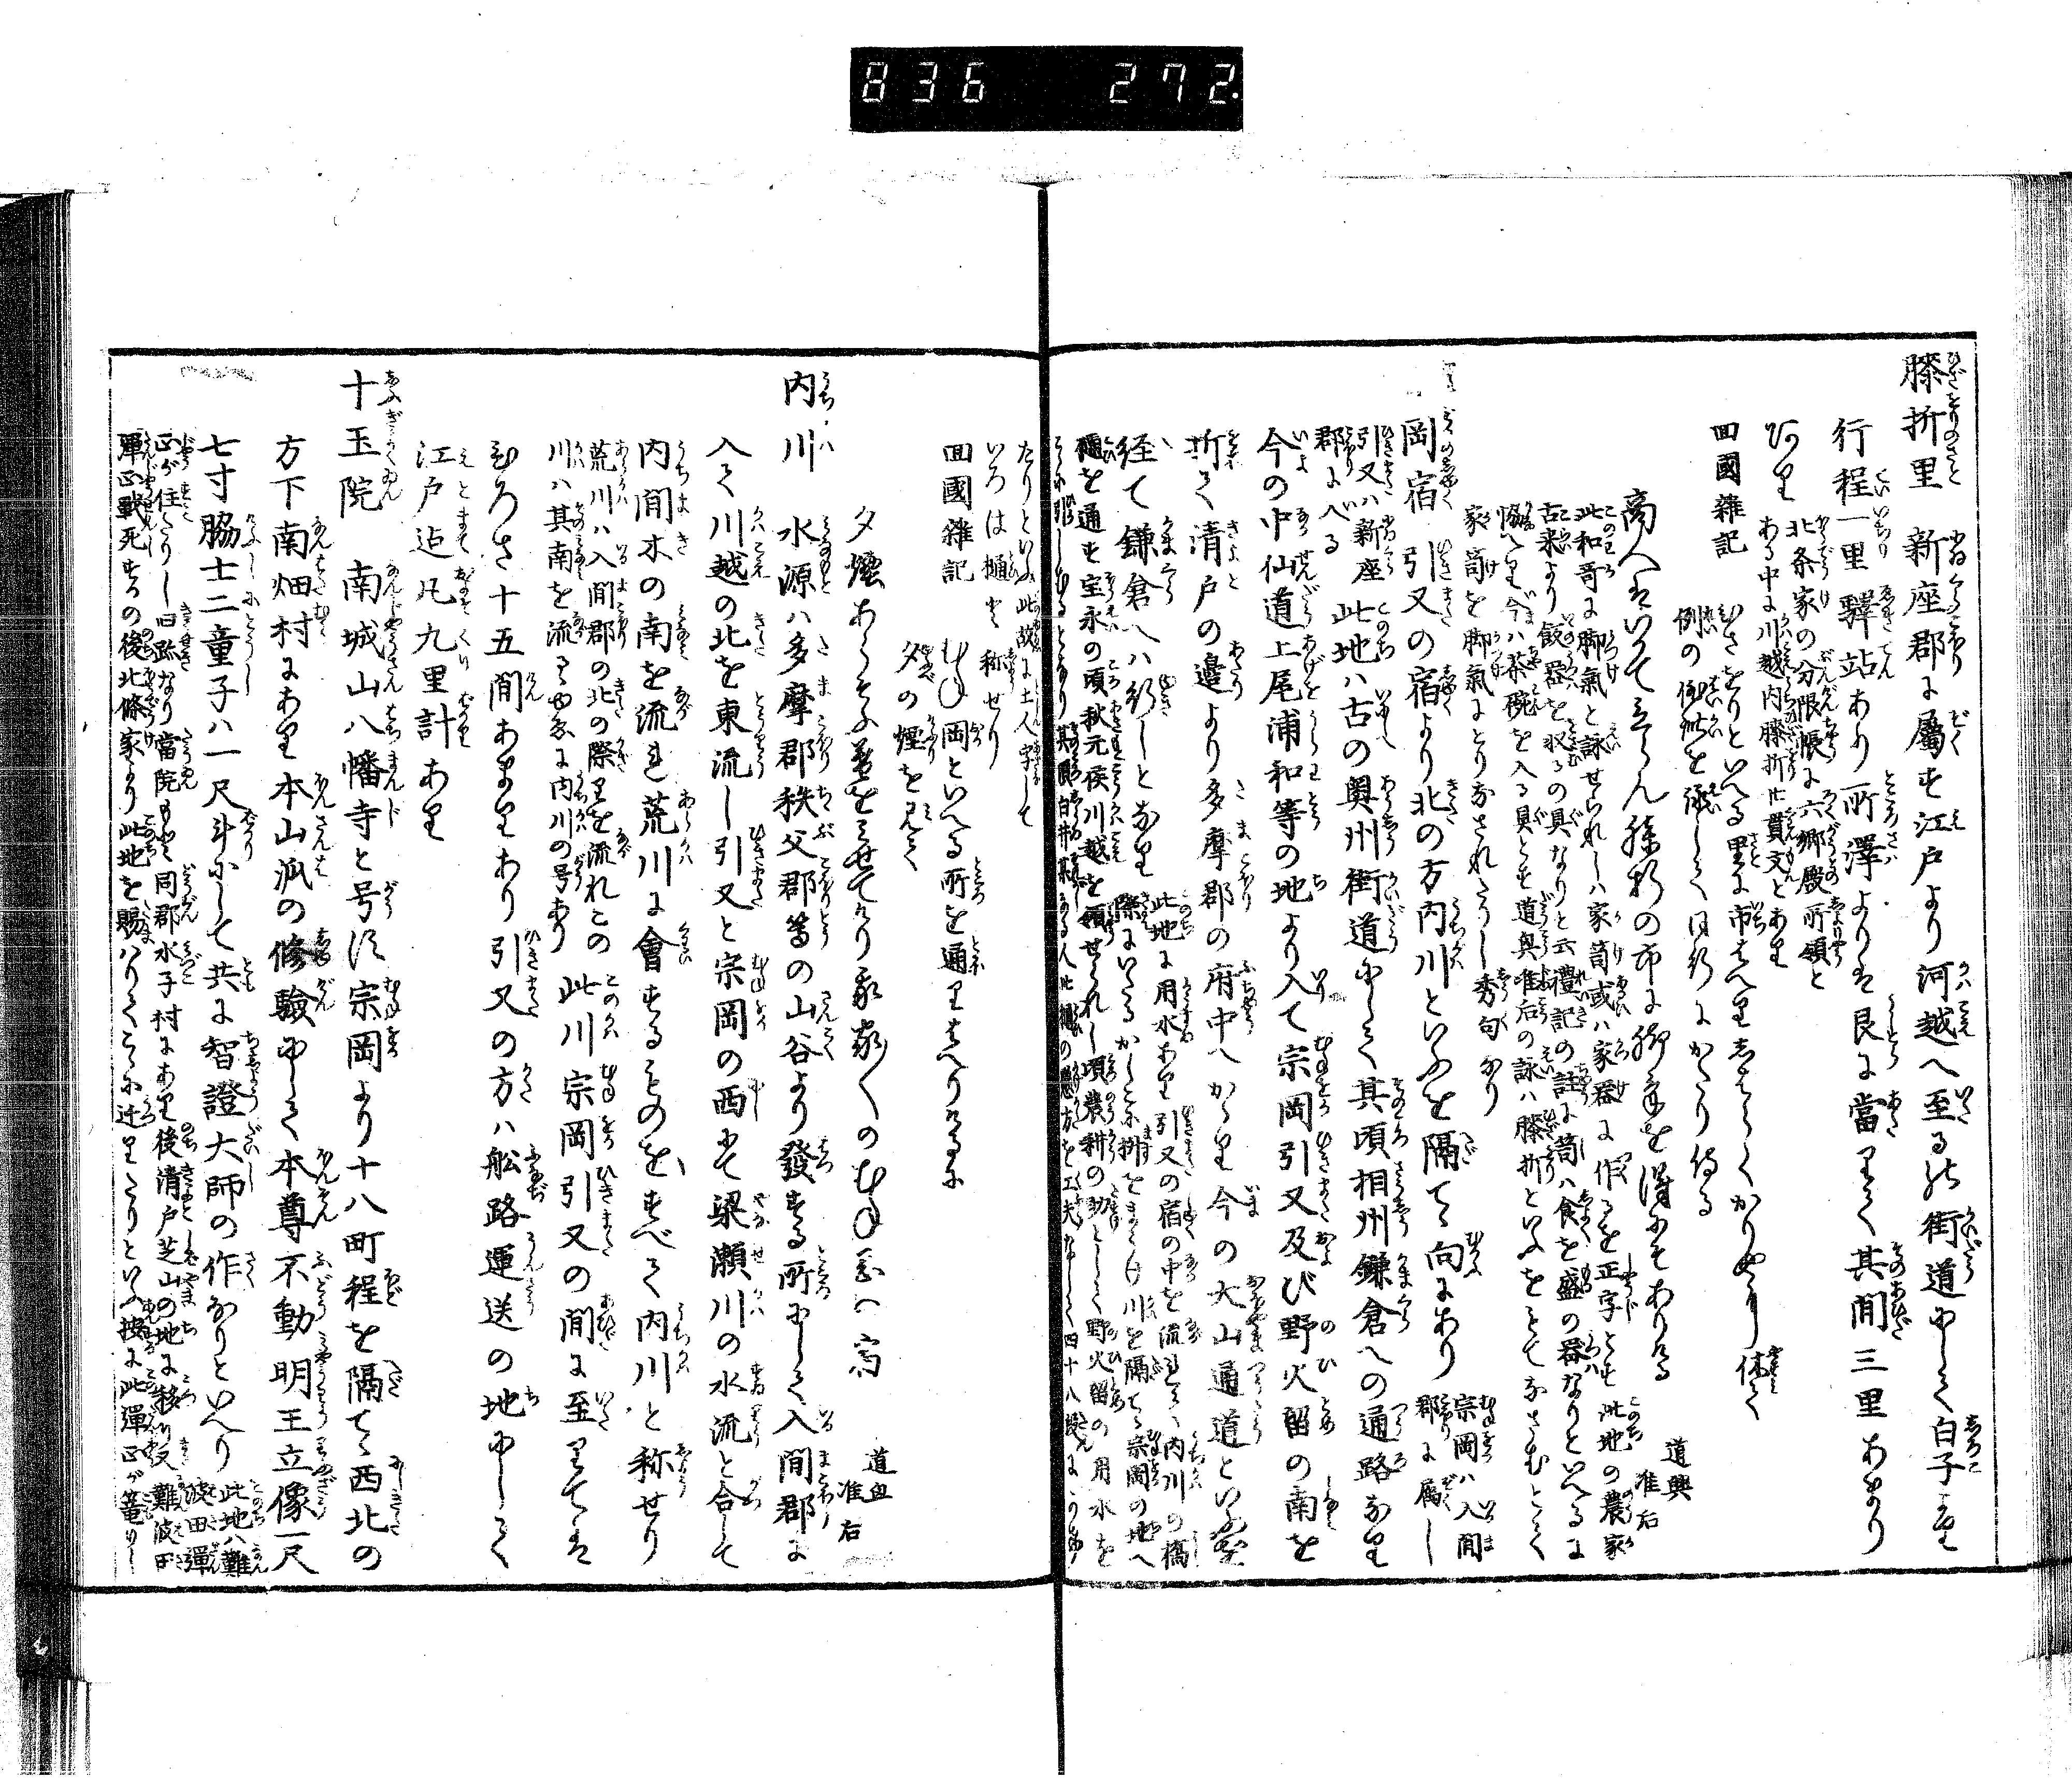 836 272.
膝折里 新座郡に属す江戸より河越へ至るの街道にして白子より
行程一里驛站あり所澤よりは艮に當りて其間三里あまり
あり 北条家の分限帳に六郷殿所領と
ある中に川越内膝折廿貫文とあり
回國雜記
ひざをりといへる里に市はべりしばらくかりやに休て
例の俳諧を詠じて同行にかたり侍る
商人はいかで立らん膝折の市に脚氣を得にそありける 道興准后
此和哥に脚氣と詠せられしハ家笥或ハ家器に作るを正字とす此地の農家
古來より飯器を収るの具なりと云禮記の註に笥ハ食を盛の器なりといへるに
協へり今ハ茶碗を入る具とす道興准后の詠ハ膝折といふをとてなさむとて
家笥を脚氣にとりなされたりし秀句なり
岡宿 引又の宿より北の方内川といふを隔て向にあり 宗岡ハ入間郡に属し
引又ハ新座郡にべる
此地ハ古の奥州街道にして其頃相州鎌倉への通路なり
今の中仙道上尾浦和等の地より入て宗岡引又及び野火留の南を
折て清戸の邊より多摩郡の府中へかゝり今の大山通道といふを
経て鎌倉へハ行しとなり 此地に用水あり引又の宿の中を流れて内川の橋
際にいたるかしこに掛をまうけ川を隔て宗岡の地へ
樋を通す宝永の頃秋元侯川越を領せられし頃農耕の助として野火留の用水を
こゝに引しむるとなり其際白井某なる人此樋の懸方を工夫なして四十八段につゆ
たりといふ此故に土人字して
いろは樋と称せり
回國雜記
むね岡といへる所を通りはべりけるに
夕の煙を見て
夕煙あらそふ暮を見せてけり家々のむね岡の宿 道興准后
内川 水源ハ多摩郡秩父郡等の山谷より發する所にして入間郡に
入て川越の北を東流し引又と宗岡の西にて梁瀬川の水流と合して
内間木の南を流れ荒川に會するものをすべて内川と称せり
荒川ハ入間郡の北の際を流れこの
川ハ其南を流るゆゑに内川の号あり
此川宗岡引又の間に至りては
ひろさ十五間あまりあり引又の方ハ舩路運送の地にして
江戸迠凡九里計あり
十玉院 南城山八幡寺と号す宗岡より十八町程を隔て西北の
方下南畑村にあり本山派の修驗にして本尊不動明王立像一尺
七寸脇士二童子ハ一尺斗にして共に智證大師の作なりといへり 此地ハ難
波田彈
正が住たりし旧跡なり當院もと同郡水子村にあり後清戸芝山の地に移り又難波田
彈正戰死するの後北條家より此地を賜ハりてこゝに迁りたりといふ按に此彈正が篭りし